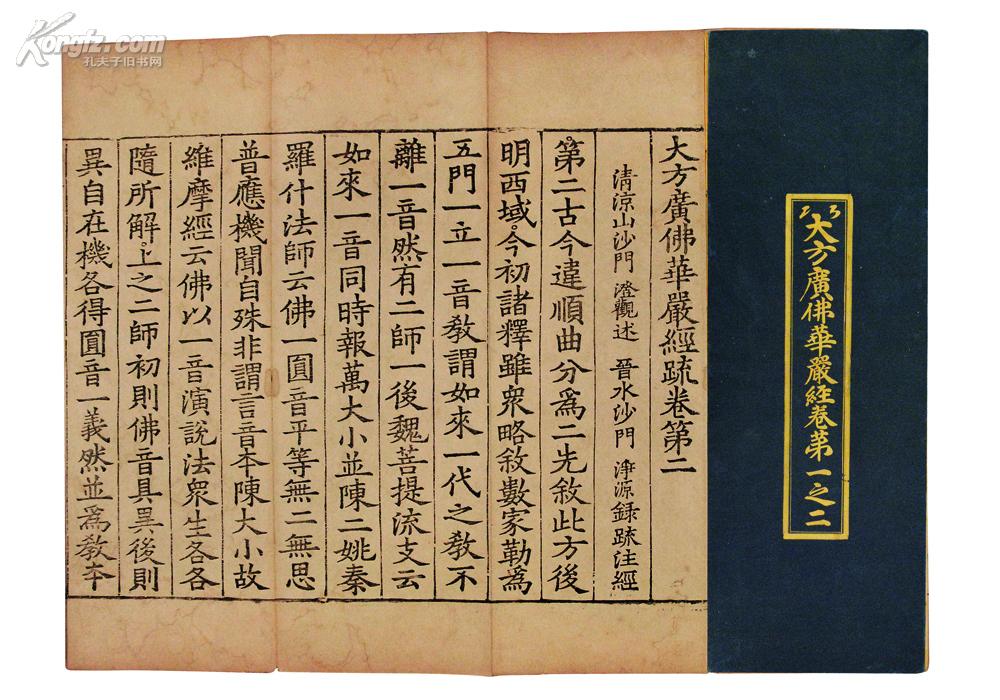 大方廣佛華嚴經疏卷第二
清涼山沙門 澄觀述 晉水沙門 淨源録疏注經
第二古今違順曲分爲二先敘此方後
明西域今初諸釋雖衆略敘數家勒爲
五門一立一音教謂如來一代之教不
離一音然有二師一後魏菩提流支云
如來一音同時報萬大小並陳二姚秦
羅什法師云佛一圓音平等無二無思
普應機聞自殊非謂言音本陳大小故
維摩經云佛以一音演說法衆生各各
隨所解上之二師初則佛音具異後則
異自在機各得圓音一義然並爲教本
23
大方廣佛華嚴經卷第一之二
Kongfz.com
孔夫子旧书网